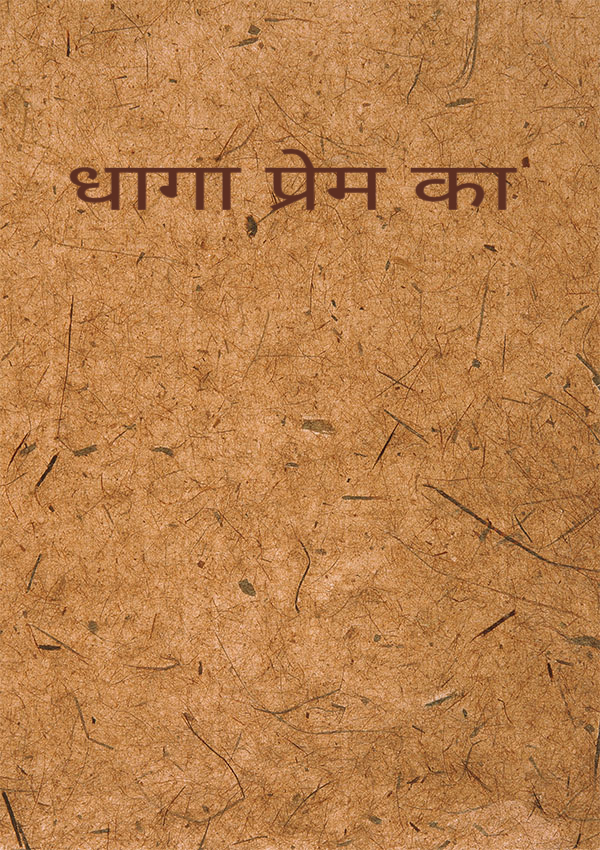 धागा प्रेम का